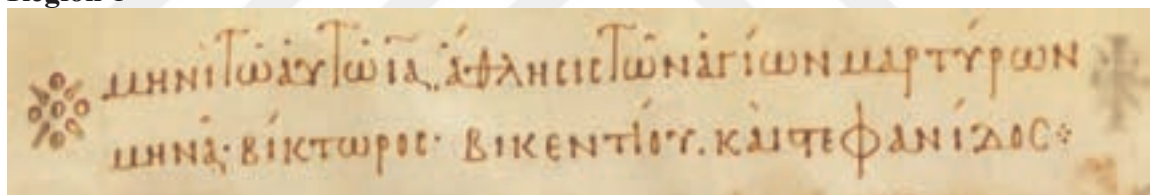 μηνὶ τῶ ἀυτῶ ιᾱ, ἄθλησις τῶν ἁγίων μαρτύρων
μηνᾶ· βίκτωρος· βικεντίου. καὶ στεφανίδος